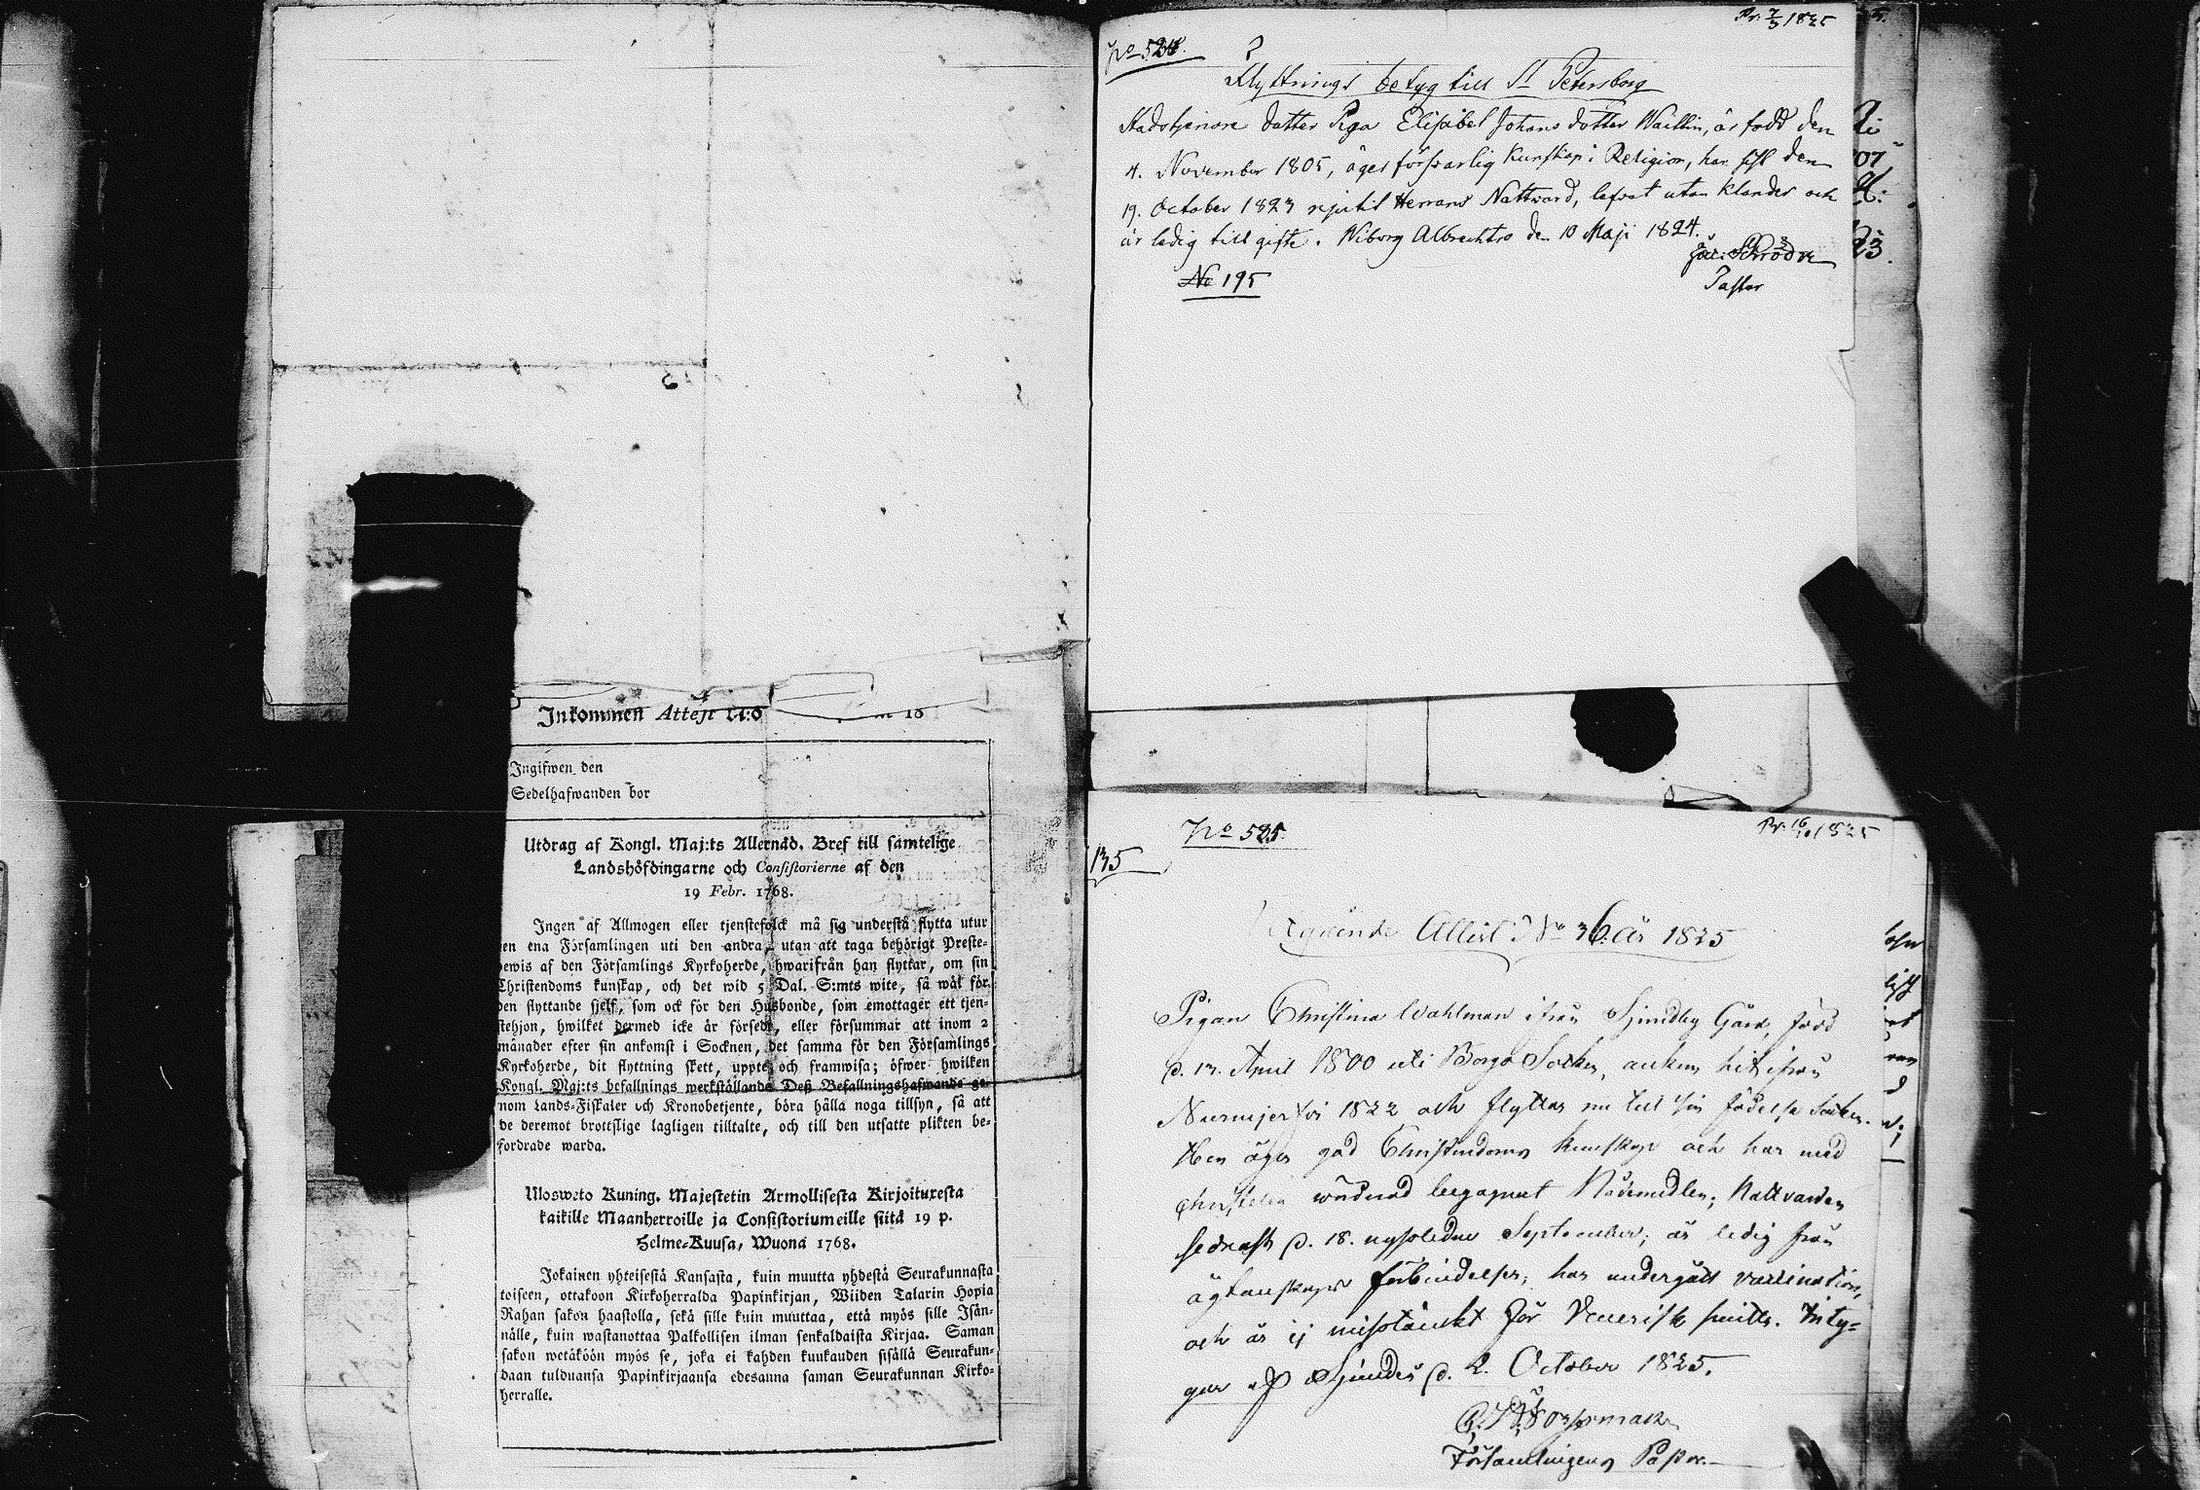 Inkommen Attest
Ingifwen den
Sedelhafwanden bor
Utdrag af Kongl. Maj:ts Allernåd. Bref till samtelige
Landshöfdingarne och Consistorierne af den
19 Febr. 1768.
Ingen af Allmogen eller tjenstefolck må sig understå flytta utur
en ena Församlingen uti den andra, utan att taga behörigt Preste-
ewis af den Församlings Kyrkoherde, hwarifrån han flyttar, om sin
Christendoms kunskap, och det wid 5 Dal. S:mts wite, så wäl för
den flyttande sjelf, som ock för den Husbonde, som emottager ett tjen-
stehjon, hwilket dermed icke är försedt, eller försummar att inom 2
månader efter sin ankomst i Socknen, det samma för den Församlings
Kyrkoherde, dit flyttning skett, uppte och framwisa; öfwer hwilken
Kongl. Maj:ts befallnings werkställande Deß Befallningshafwande ge-
nom Lands-Fiskaler och Kronobetjente, böra hålla noga tillsyn, så att
de deremot brottslige lagligen tilltalte, och till den utsatte plikten be-
fordrade warda.
Ulosweto Kuning. Majestetin Armollisesta Kirjoituxesta
kaikille Maanherroille ja Consistoriumeille siitä 19 p.
Helme-Kuusa, Wuonä 1768.
Jokainen yhteisestä Kansasta, kuin muutta yhdestä Seurakunnasta
toiseen, ottakoon Kirkoherralda Papinkirjan, Wiiden Talarin Hopia
Rahan sakon haastolla, sekä sille kuin muuttaa, että myös sille Isän-
nälle, kuin wastanottaa Palkollisen ilman senkaldaista Kirjaa. Saman
sakon wetäköön myös se, joka ei kahden kuukauden sisällä Seurakun-
daan tulduansa Papinkirjaansa edesanna saman Seurakunnan Kirko-
herralle.
Pr. 7/3 1825
No 524.
Flyttnings betyg till St Petersborg
Stadstjenare dotter Piga Elisabet Johans dotter Waillin, är född den
4. November 1805, äger försvarlig Kunskap i Religion, har sist den
19. October 1823 njutit Herrans Nattward, lefvat utan klander och
är ledig till gifte. Wiborg Albrechtro den 10 Maji 1824.
Schröder
No 195
Pastor
No 525.
Pr. 16/10 1825
135
Utgående Attest No 36. år 1825
Pigan Christina Wahlman ifrån Sjundby Gård, född
d. 17. April 1800 uti Borgo Socken, ankom hit ifrån
Nurmijerfvi 1822 och flyttar nu till sin födelse Socken.
Hon äger god Christendoms kunskap och har med
christelig wördnad begagnat Nådemedlen; Nattvarden
sednast d. 18. nyssledne September; är ledig från
ägtenskaps förbindelser, har undergått vaccination,
och är ej misstänkt för Venerisk smitta. Inty-
gar Sjundeå d. 2. October 1825.
Församlingens Pastor.